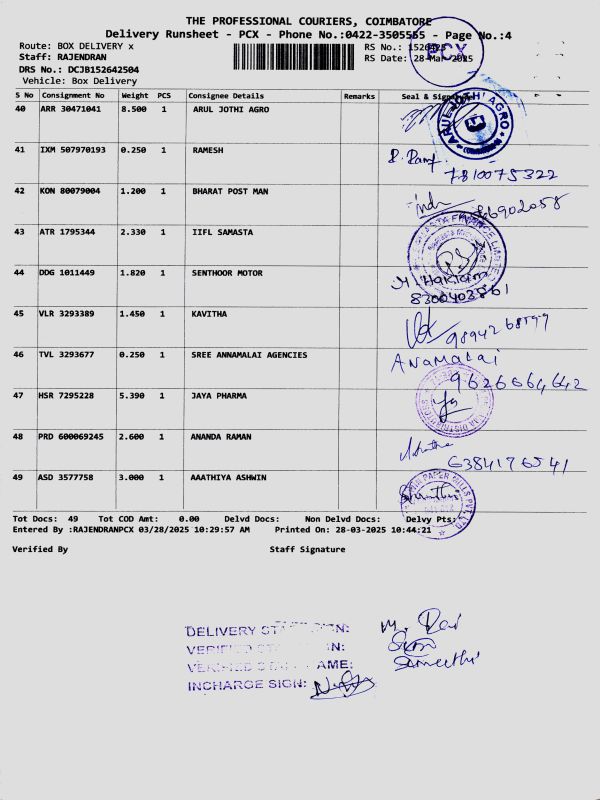 THE PROFESSIONAL COURIERS, COIMBATORE
Delivery Runsheet - PCX - Phone No.:0422-3505555 - Page No.:4
Route: BOX DELIVERY x RS No.:
Staff: RAJENDRAN RS Date: 28-Mar-2025
DRS No.: DCJB152642504
Vehicle: Box Delivery
PCX
S No Consignment No Weight PCS Consignee Details Remarks Seal & Signature
40 ARR 30471041 8.500 1 ARUL JOTHI AGRO
41 IXM 507970193 0.250 1 RAMESH
7810075322
42 KON 80079004 1.200 1 BHARAT POST MAN
43 ATR 1795344 2.330 1 IIFL SAMASTA
44 DDG 1011449 1.820 1 SENTHOOR MOTOR
8300403861
45 VLR 3293389 1.450 1 KAVITHA
46 TVL 3293677 0.250 1 SREE ANNAMALAI AGENCIES
ANamalai
9626664642
47 HSR 7295228 5.390 1 JAYA PHARMA
48 PRD 600069245 2.600 1 ANANDA RAMAN
6384176541
49 ASD 3577758 3.000 1 AAATHIYA ASHWIN
Tot Docs: 49 Tot COD Amt: 0.00 Delvd Docs: Non Delvd Docs: Delvy Pts:
Entered By :RAJENDRANPCX 03/28/2025 10:29:57 AM Printed On: 28-03-2025 10:44:21
Verified By Staff Signature
DELIVERY SIGN:
VERIFIED
VERIFIED NAME:
INCHARGE SIGN: